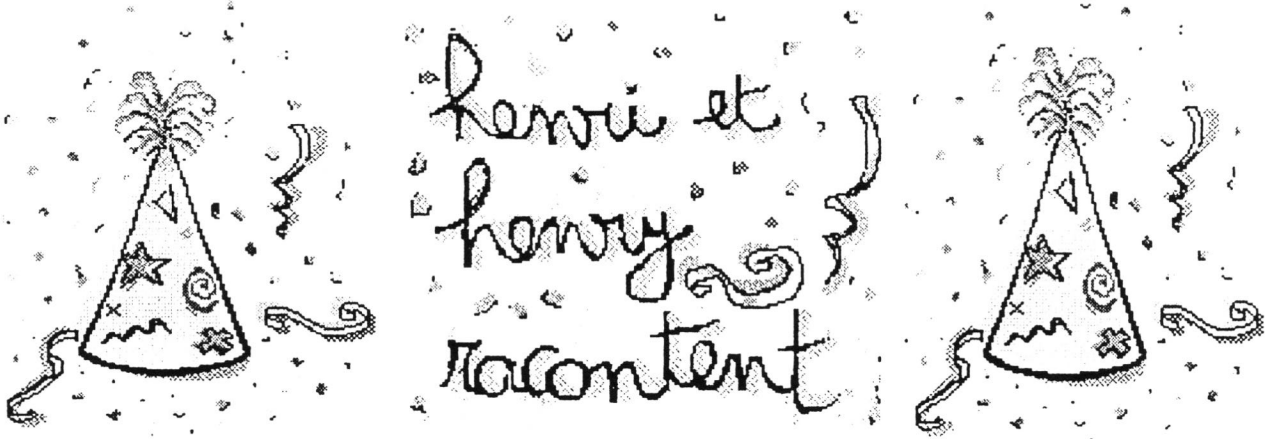 henri et
henry
racontent